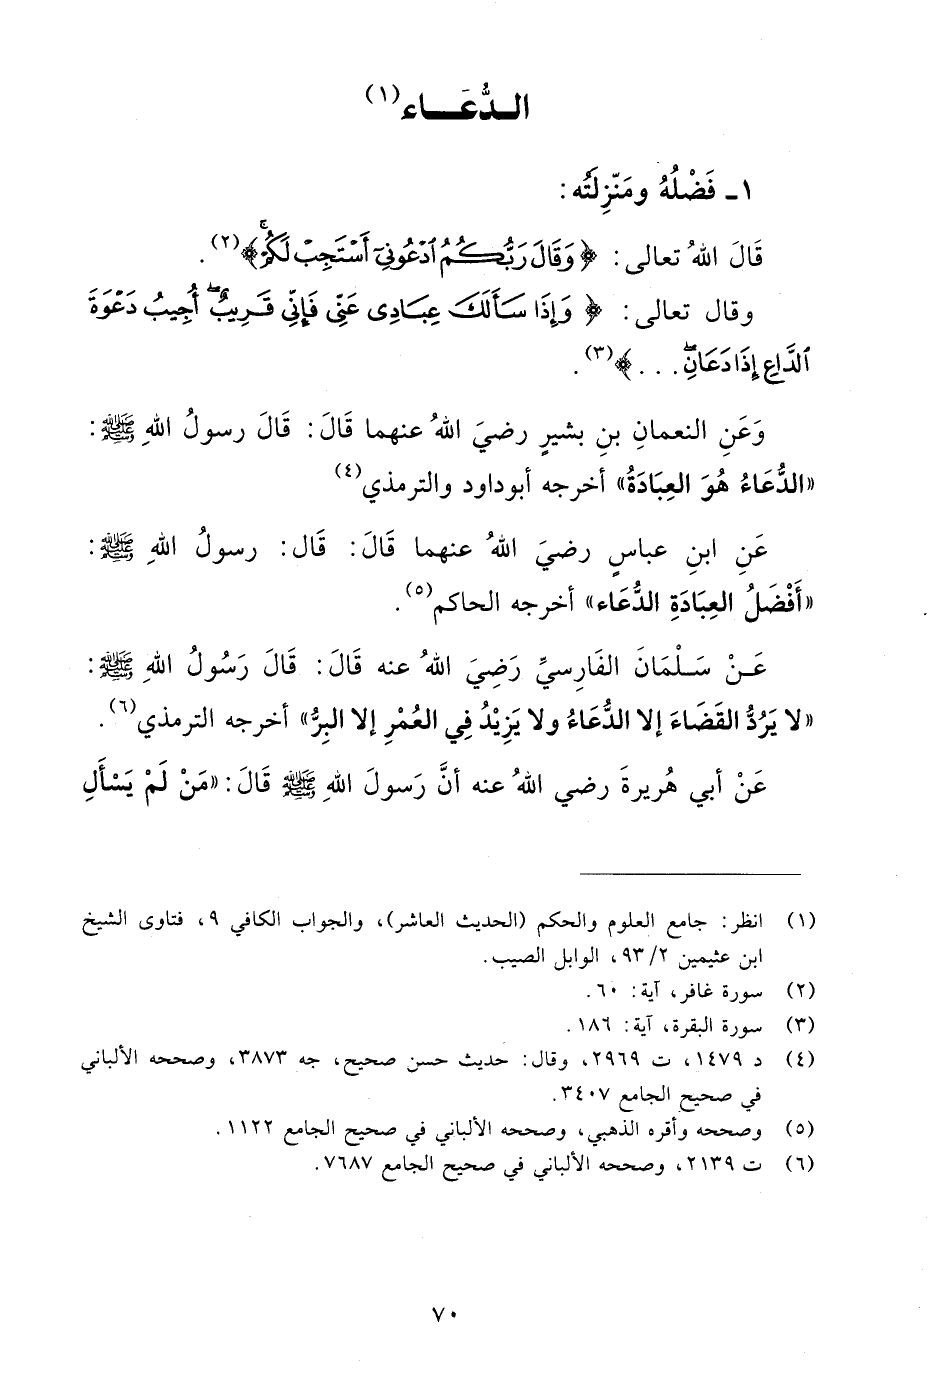 الـدُّعَــاء(١)
١ـ فَضْلُهُ ومَنّزِلَتُه:
قَالَ اللهُ تعالى: ﴿وَقَالَ رَبُّكُمُ ٱدْعُونِىٓ أَسْتَجِبْ لَكُمْ﴾(٢).
وقال تعالى: ﴿وَإِذَا سَأَلَكَ عِبَادِى عَنِّى فَإِنِّى قَرِيبٌ أُجِيبُ دَعْوَةَ
ٱلدَّاعِ إِذَا دَعَانِ . . .﴾(٣).
وَعَنِ النعمانِ بنِ بشيرٍ رضيَ اللهُ عنهما قَالَ: قَالَ رسولُ اللهِ ﷺ:
«الدُّعَاءُ هُوَ العِبَادَةُ» أخرجه أبوداود والترمذي(٤)
عَنِ ابنِ عباسٍ رضيَ اللهُ عنهما قَالَ: قَال: رسولُ اللهِ ﷺ:
«أَفْضَلُ العِبَادَةِ الدُّعَاء» أخرجه الحاكم(٥).
عَـنْ سَـلْمَانَ الفَارِسيِّ رَضِيَ اللهُ عنه قَالَ: قَالَ رَسُولُ اللهِ ﷺ:
«لا يَرُدُّ القَضَاءَ إلا الدُّعَاءُ ولا يَزِيْدُ فِي العُمْرِ إلا البِرُّ» أخرجه الترمذي(٦).
عَنْ أبي هُريرةَ رضي اللهُ عنه أنَّ رَسولَ اللهِ ﷺ قَالَ: «مَنْ لَمْ يَسْأَلِ
(١) انظر: جامع العلوم والحكم (الحديث العاشر)، والجواب الكافي ٩، فتاوى الشيخ
ابن عثيمين ٢/ ٩٣، الوابل الصيب.
(٢) سورة غافر، آية: ٦٠.
(٣) سورة البقرة، آية: ١٨٦.
(٤) د ١٤٧٩، ت ٢٩٦٩، وقال: حديث حسن صحيح، جه ٣٨٧٣، وصححه الألباني
في صحيح الجامع ٣٤٠٧.
(٥) وصححه وأقره الذهبي، وصححه الألباني في صحيح الجامع ١١٢٢.
(٦) ت ٢١٣٩، وصححه الألباني في صحيح الجامع ٧٦٨٧.
٧٠